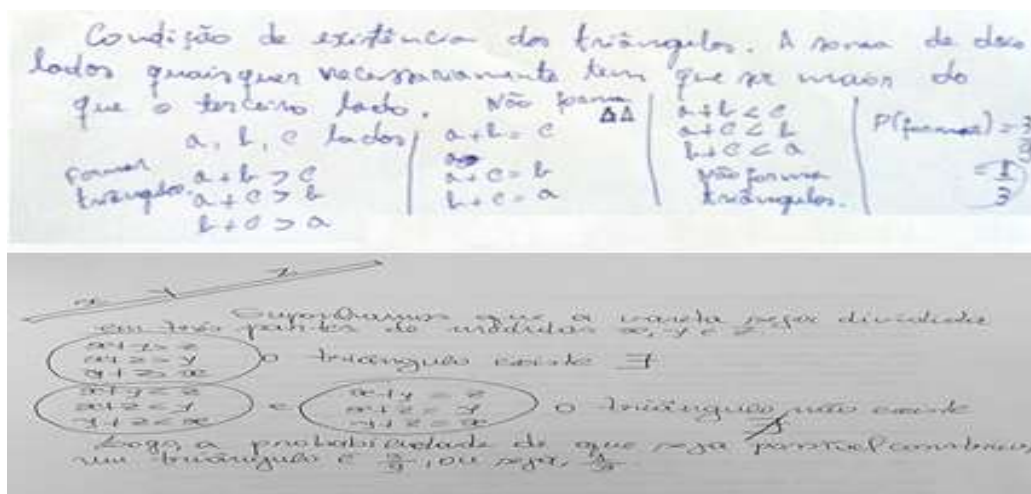 Condição de existência dos triângulos. A soma de dois
lados quaisquer necessariamente tem que ser maior do
que o terceiro lado.
a, b, c lados
formar triângulos.
a + b > c
a + c > b
b + c > a
Não forma ΔΔ
a + b = c
a + c = b
b + c = a
a + b < c
a + c < b
b + c < a
Não forma
triângulos.
P(formar) = 3
= 1/3
x y z
Suponhamos que a vareta seja dividida
em três partes de medidas x, y e z.
x + y > z
x + z > y
y + z > x
o triângulo existe ∃
x + y < z
x + z < y
y + z < x
e
x + y = z
x + z = y
y + z = x
o triângulo não existe
Logo, a probabilidade de que seja possível construir
um triângulo é 3/9, ou seja, 1/3.